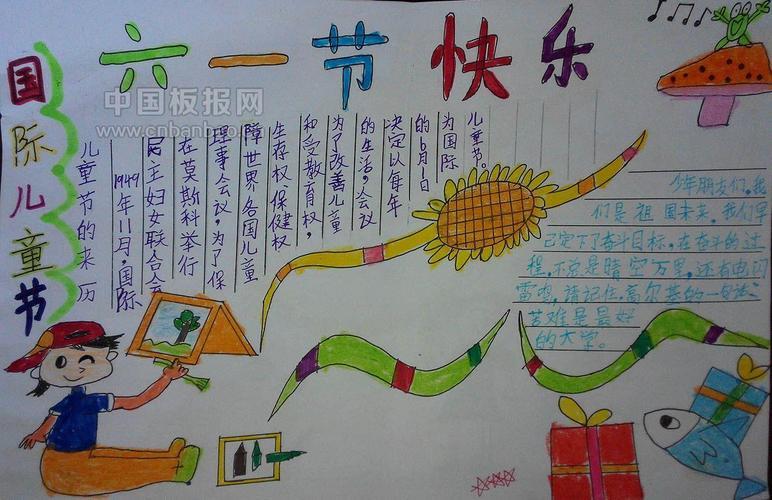 六一节快乐
国际儿童节
中国板报网
www.cnbanbao.com
儿童节的来历
1949年11月,国际
民主妇女联合会
在莫斯科举行
理事会议,为了保
障世界各国儿童
生存权 保健权
和受教育权,
为了改善儿童
的生活,会议
决定以每年
的6月1日
为国际
儿童节。
少年朋友们,我
们是祖国未来,我们早
已定下了奋斗目标,在奋斗的过
程,不总是晴空万里,还有电闪
雷鸣,请记住,高尔基的一句话:
苦难是最好
的大学。